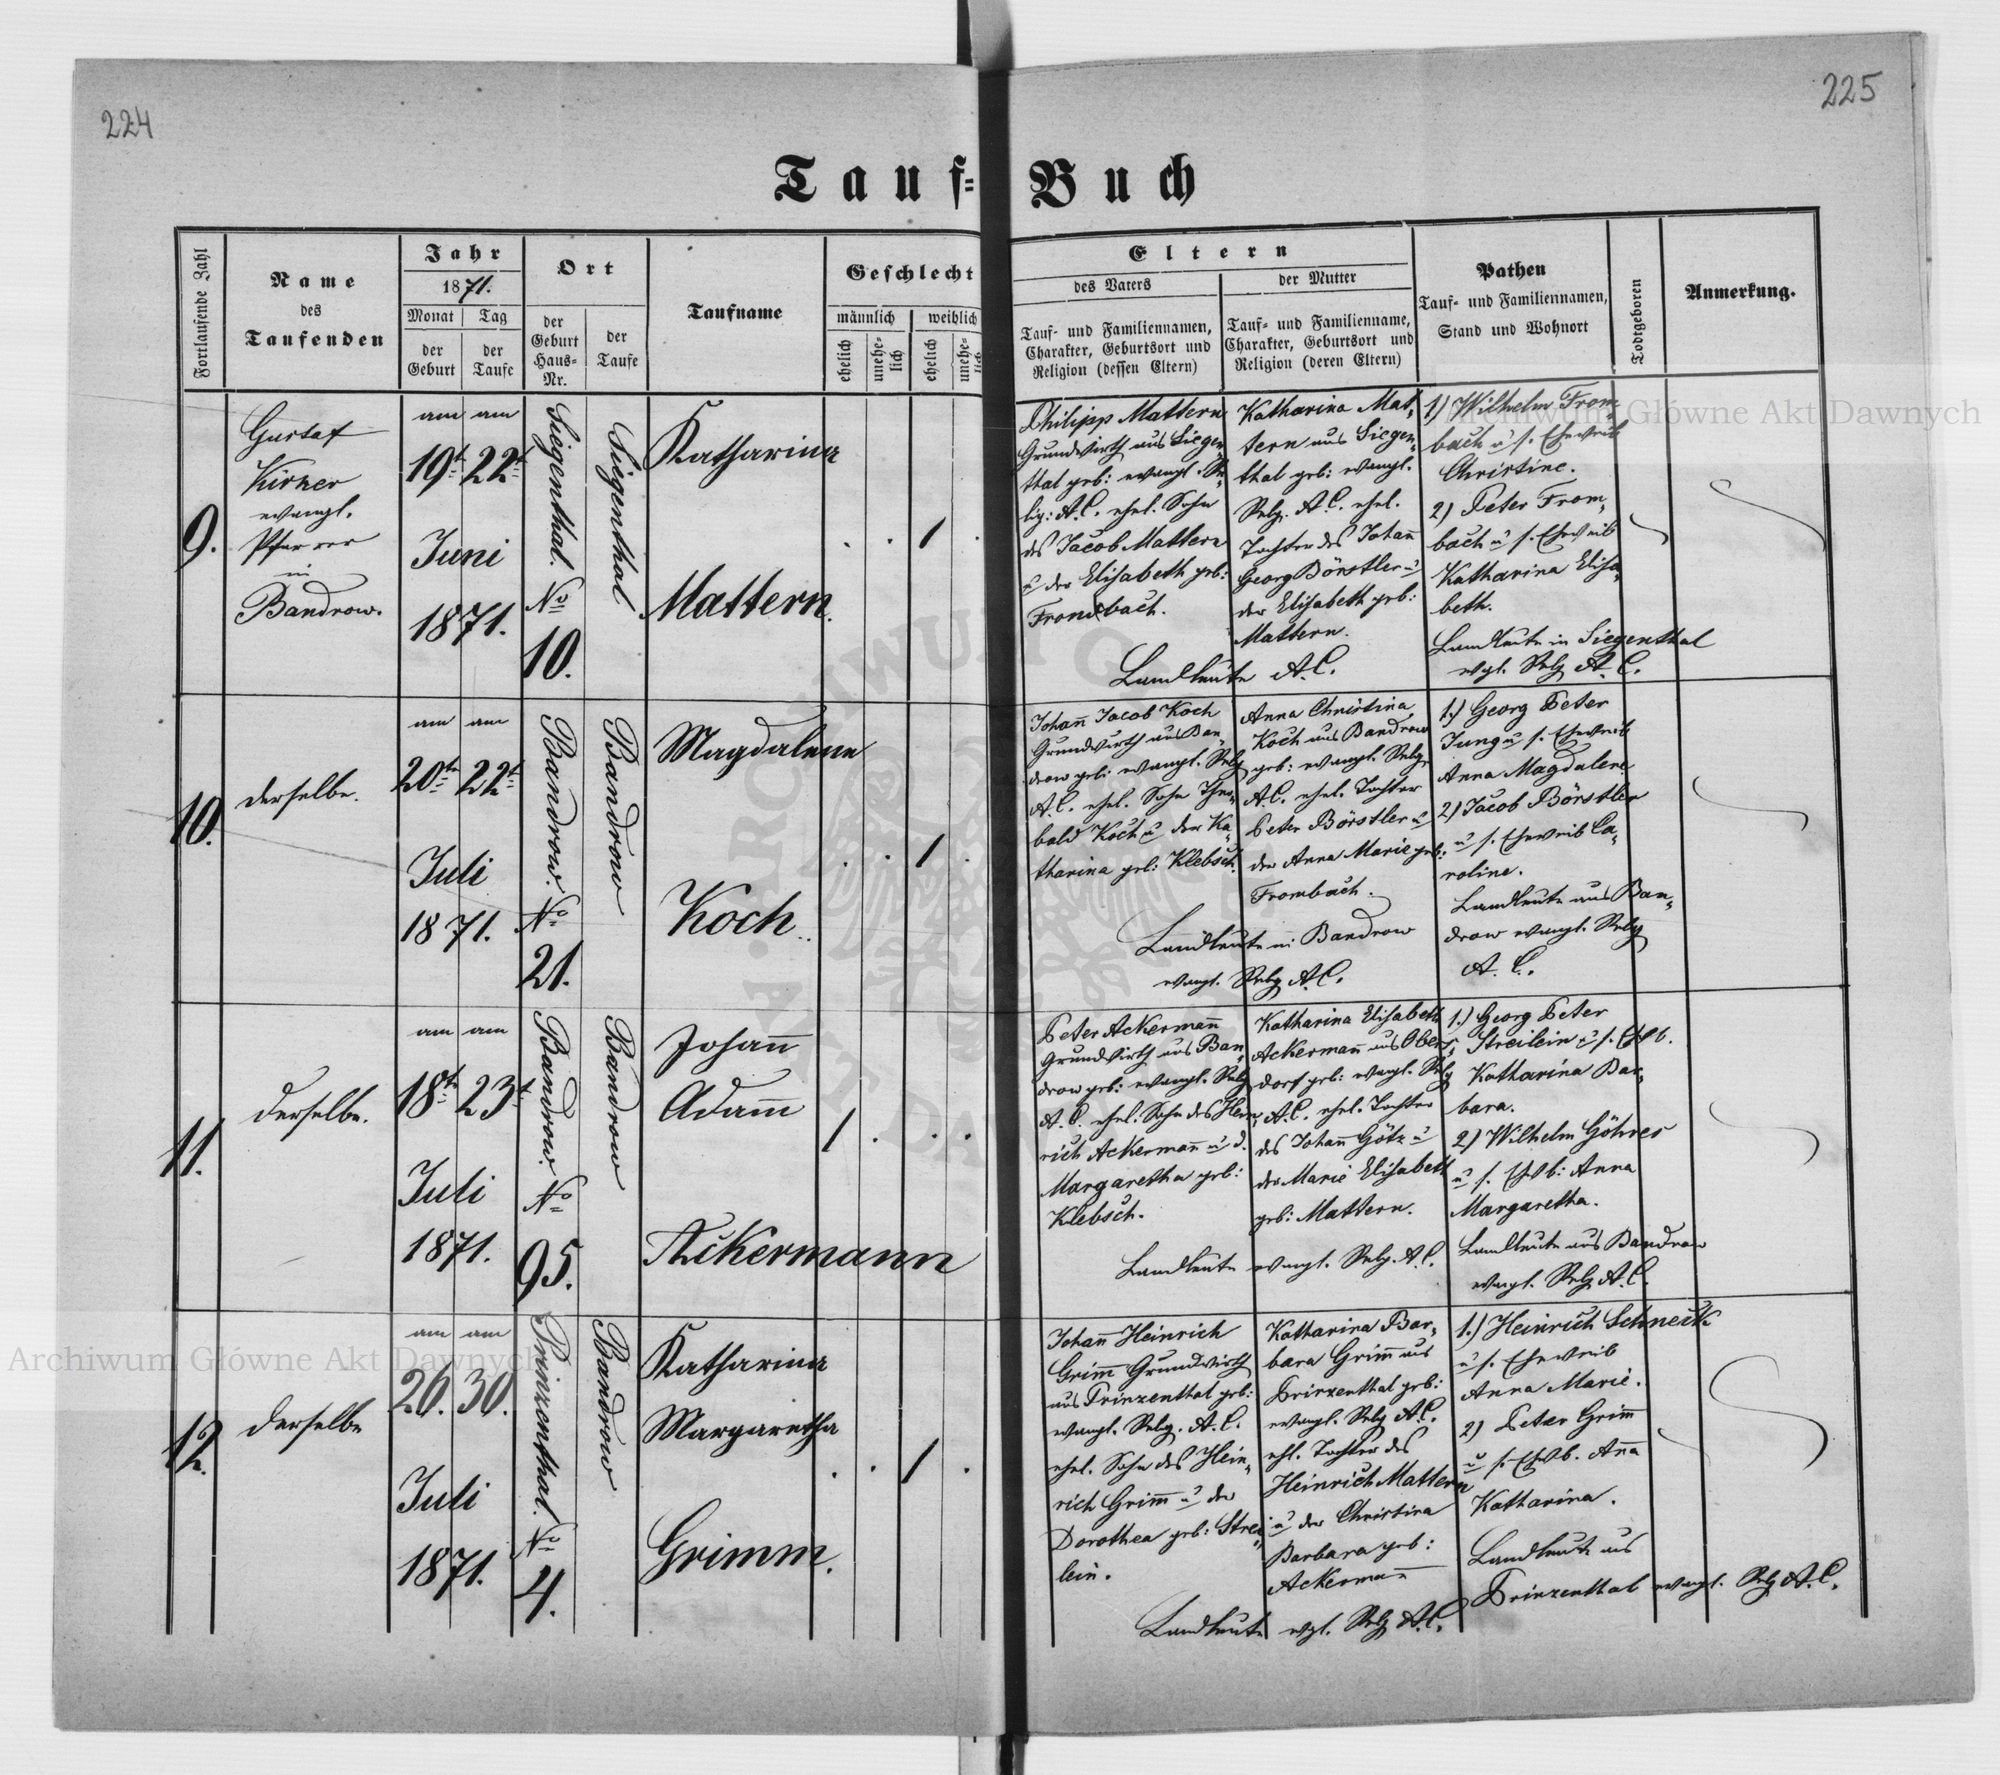 224
225
Tauf-Buch
Fortlaufende Zahl
Name
des
Taufenden
Jahr
1871.
Monat
Tag
der
Geburt
der
Taufe
Ort
der
Geburt
Haus-
Nr.
der
Taufe
Taufname
Geschlecht
männlich
weiblich
ehelich
unehe-
lich
ehelich
unehe-
lich
Eltern
des Vaters
der Mutter
Tauf- und Familiennamen,
Charakter, Geburtsort und
Religion (dessen Eltern)
Tauf- und Familienname,
Charakter, Geburtsort und
Religion (deren Eltern)
Pathen
Tauf- und Familiennamen,
Stand und Wohnort
Todtgeboren
Anmerkung.
9.
Gustaf
Kirner
evangl.
Pfarrer
in
Bandrow.
am am
19t. 22t.
Juni
1871.
Siegenthal. No
10.
Siegenthal
Katharina
Mattern.
1
Philipp Mattern
Grundwirth aus Siegen-
thal geb: evangl. Re-
lig: A.C. ehel. Sohn
des Jacob Mattern
u der Elisabeth geb:
Frombach.
Katharina Mat-
tern aus Siegen-
thal geb: evangl.
Relg. A.C. ehel.
Tochter des Johan̅
Georg Börstler u
der Elisabeth geb:
Mattern.
Landleute A.C.
1) Wilhelm From-
bach u s. Eheweib
Christine.
2) Peter From-
bach u s. Eheweib
Katharina Elisa-
beth.
Landleute in Siegenthal
evgl. Relg A.C.
10.
derselbe.
am am
20t. 22t.
Juli
1871.
Bandrow. No
21.
Bandrow
Magdalene
Koch.
1
Johan̅ Jacob Koch
Grundwirth aus Ban-
drow geb: evangl. Relg
A.C. ehel. Sohn Theo-
bald Koch u der Ka-
tharina geb: Klebsch.
Anna Christina
Koch aus Bandrow
geb: evangl. Relg.
A.C. ehel. Tochter
Peter Börstler u
der Anna Marie geb:
Frombach.
Landleute in Bandrow
evangl. Relg A.C.
1.) Georg Peter
Jung u s. Eheweib
Anna Magdalene
2) Jacob Börstler
u s. Eheweib Ca-
roline.
Landleute aus Ban-
drow evangl. Relg
A.C.
11.
derselbe.
am am
18t. 23t.
Juli
1871.
Bandrow. No
95.
Bandrow
Johan̅
Adam̅
Ackermann
1
Peter Ackerman̅
Grundwirth aus Ban-
drow geb: evangl. Relg
A.C. ehel. Sohn des Hein-
rich Ackerman̅ u d.
Margaretha geb:
Klebsch.
Katharina Elisabeth
Ackerman̅ aus Obers-
dorf geb: evangl. Relg
A.C. ehel. Tochter
des Johan̅ Götz u
der Marie Elisabeth
geb: Mattern.
Landleute evangl. Relg. A.C.
1.) Georg Peter
Streilein u s. Ehwb.
Katharina Bar-
bara.
2) Wilhelm Göhres
u s. Ehwb: Anna
Margaretha.
Landleute aus Bandrow
evangl. Relg A.C.
12.
derselbe
am am
26. 30.
Juli
1871.
Prinzenthal. No
4.
Bandrow
Katharina
Margaretha
Grimm.
1
Johan̅ Heinrich
Grim̅ Grundwirth
aus Prinzenthal geb:
evangl. Relg. A.C.
ehel. Sohn des Hein-
rich Grim̅ u der
Dorothea geb: Strei-
lein.
Katharina Bar-
bara Grim̅ aus
Prinzenthal geb:
evangl. Relg A.C.
ehl. Tochter des
Heinrich Mattern
u der Christina
Barbara geb:
Ackerman̅
Landleute evgl. Relg A.C.
1.) Heinrich Schneick
u s. Eheweib
Anna Marie.
2) Peter Grim̅
u s. Ehwb. An̅a
Katharina.
Landleute aus
Prinzenthal evangl. Relg A.C.
Archiwum Główne Akt Dawnych
Archiwum Główne Akt Dawnych